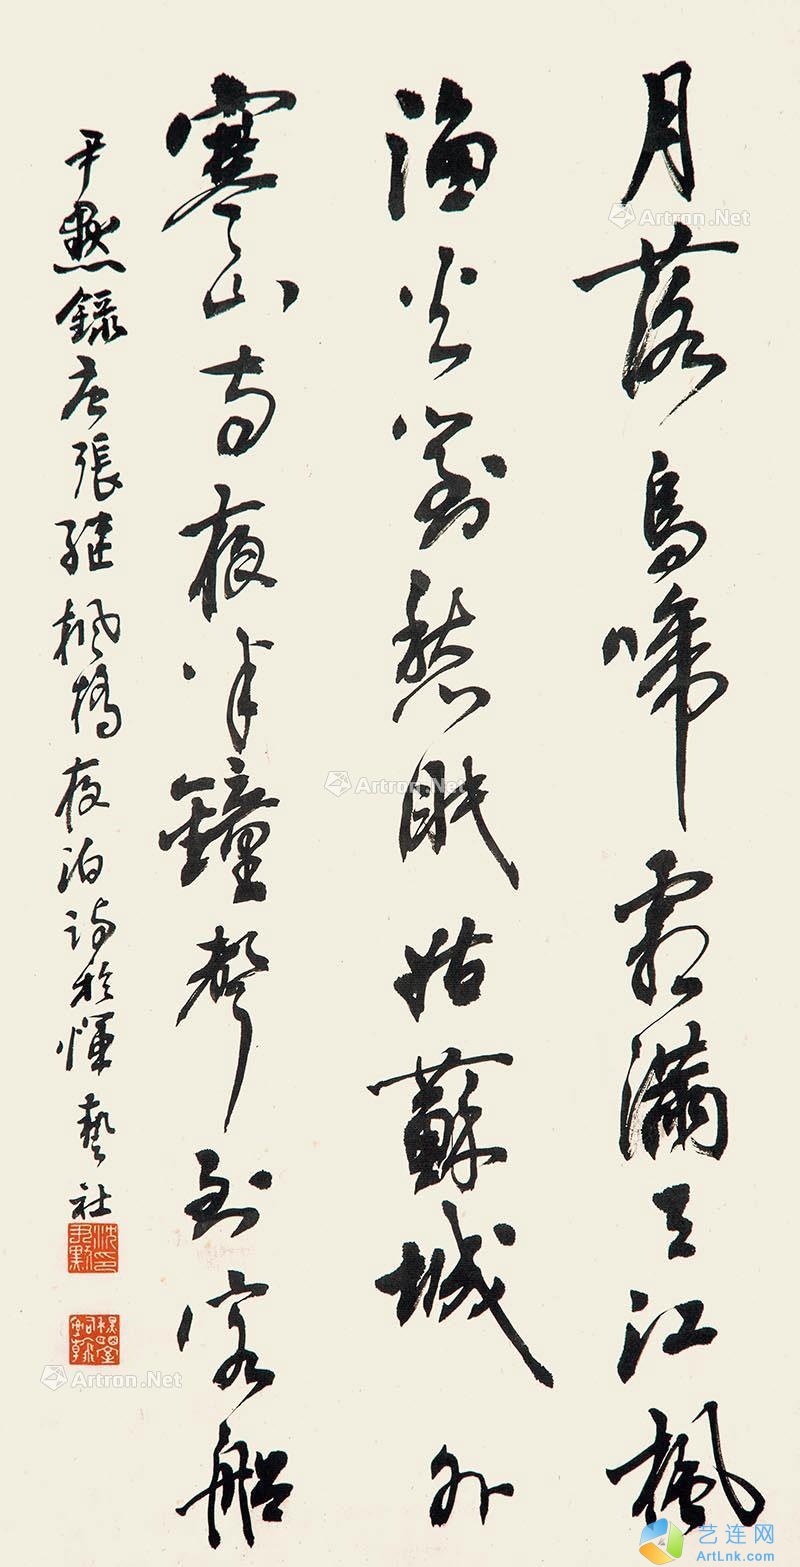 月落烏啼霜滿天江楓
漁火對愁眠姑蘇城外
寒山寺夜半鐘聲到客船
尹默錄唐張繼楓橋夜泊詩於惲藝社
沈尹默印
Artron.Net
Artron.Net
Artron.Net
艺连网
ArtLnk.com